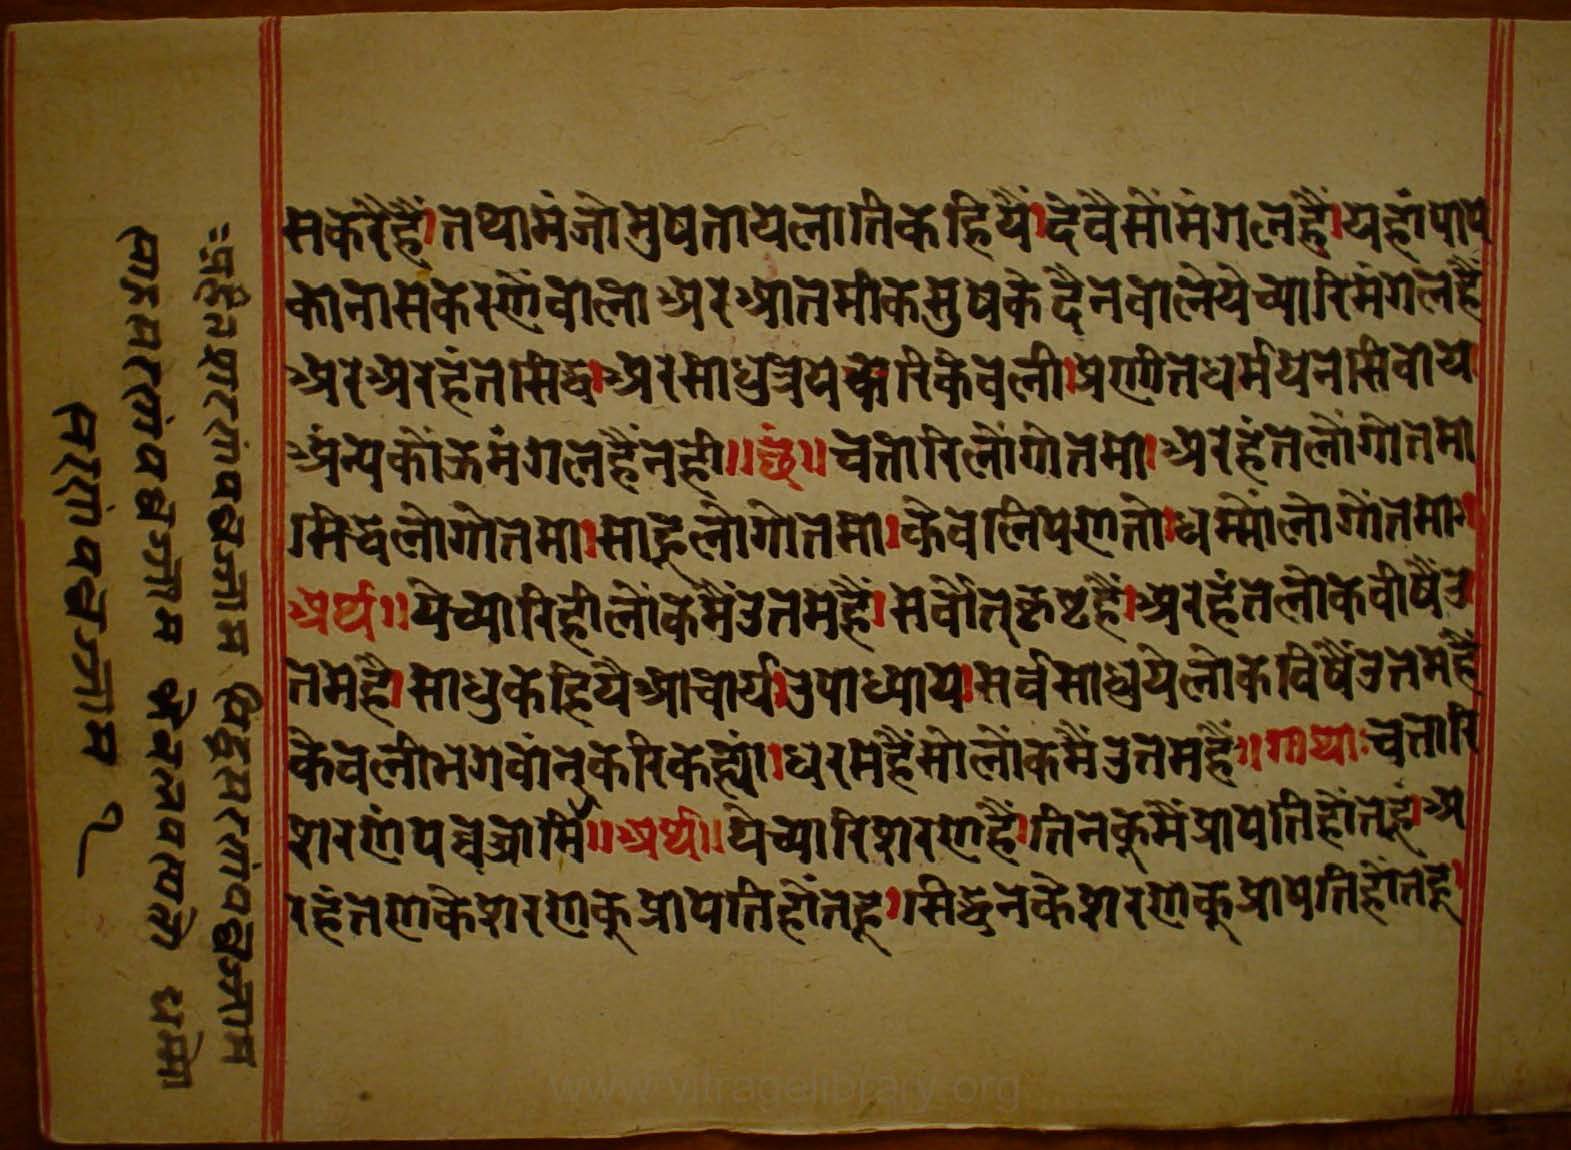 सकरैहैं। तथा मंजो सुष ताय लाति कहियैं। देवै सो मंगल है। यहां पाप
का नास करणैं वाला अर आतमीक सुष के दैन वाले ये च्यारि मंगल हैं
अर अरहंत सिद्ध। अर साधु त्रय करि केवली। प्रणीत धर्म य न सिवाय
अंन्य कोंऊ मंगल हैं नही॥ छं॥ चत्तारि लोंगोतमा। अरहंत लोंगोतमा
सिद्ध लोगोतमा। साहू लोगोतमा। केवलि पणत्तो। धम्मों लोगोंतमा।
अर्थ॥ ये च्यारि ही लोंक मैं उतम हैं। सर्वोत्कृष्ट हैं। अरहंत लोक वीषैं उ
तम है। साधु कहियै आचार्य। उपाध्याय। सर्व साधु ये लोक विषैं उतम हैं
केवली भगवांन् करि कह्यां। धरम हैं सो लोंक मैं उतम हैं॥ गाथाः चत्तारि
शरणं पव्वज्जामि॥ अर्थ॥ ये च्यारि शरण हैं। तिन कू मैं प्रापति होंत हूं। अ
रहंतण के शरण कू प्रापति होंत हू। सिद्धन के शरण कू प्रापति होंत हू।
अरहंत सरणं पवज्जाम सिद्ध सरणं पवज्जाम
साहु सरणं पवज्जाम केवल पणत्तो धम्मो
सरणं पवज्जाम १
www.vitragelibrary.org